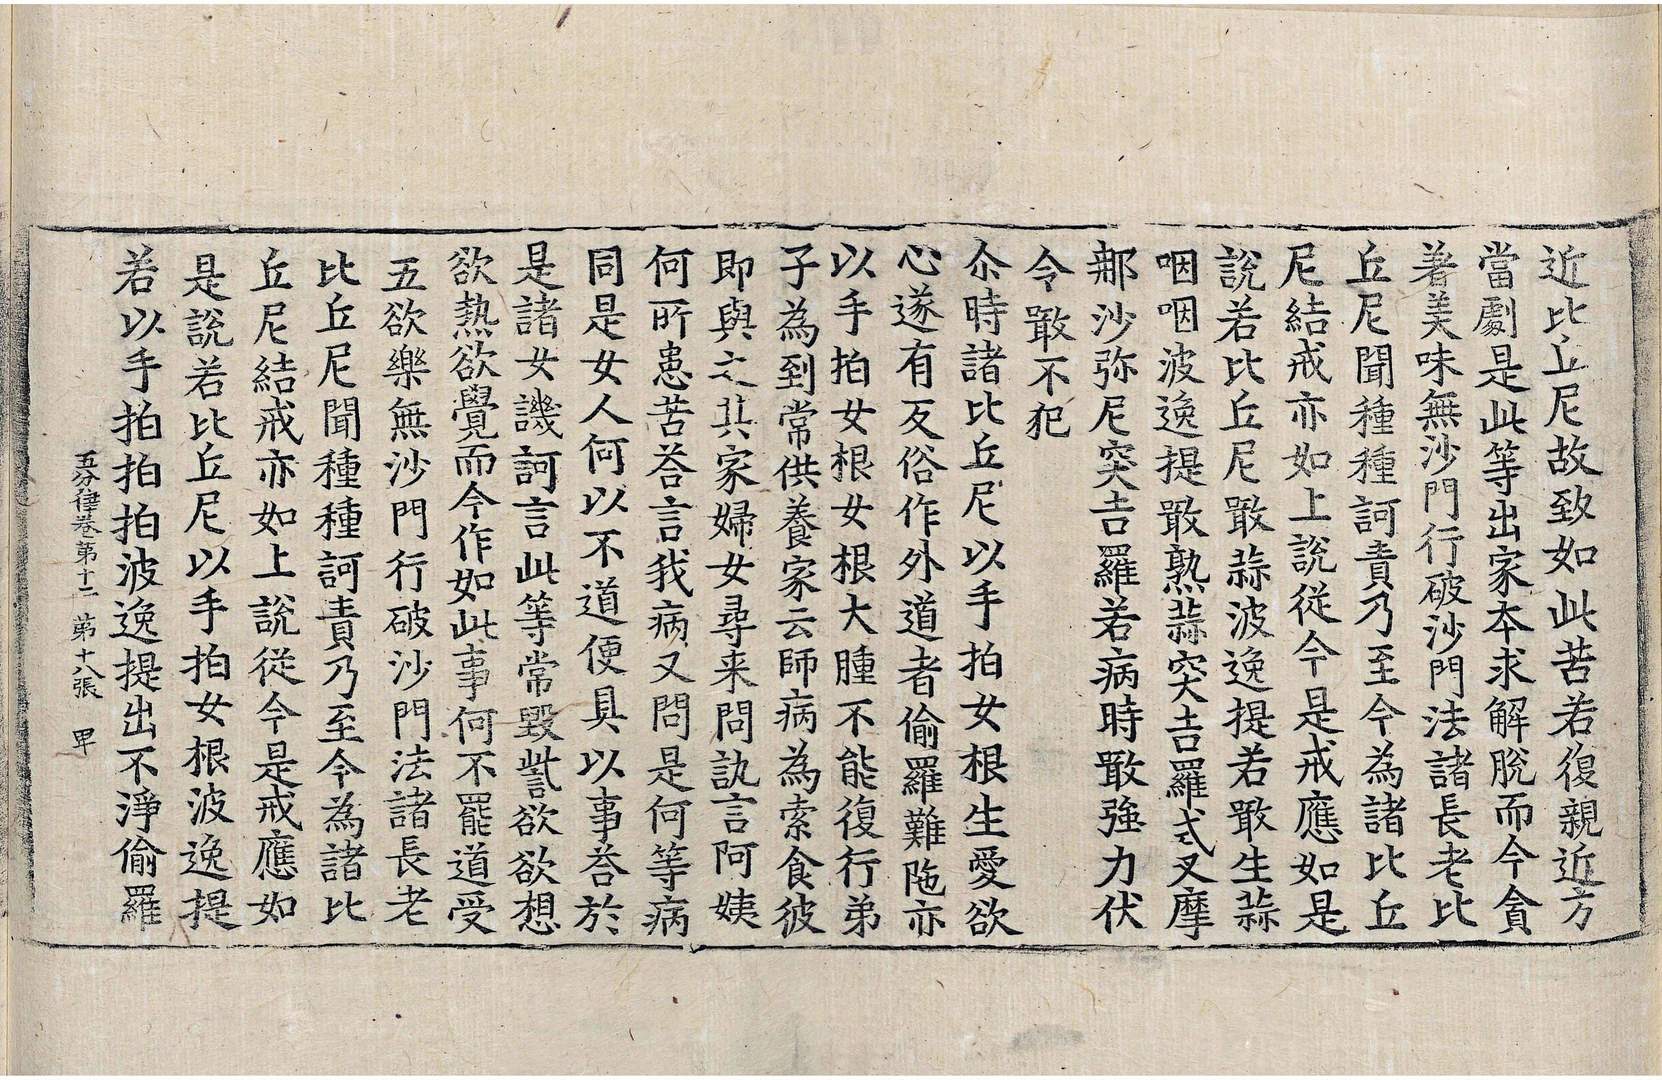 近比丘尼故致如此苦若復親近方
當劇是此等出家本求解脫而今貪
著美味無沙門行破沙門法諸長老比
丘尼聞種種訶責乃至今為諸比丘
尼結戒亦如上說從今是戒應如是
說若比丘尼噉蒜波逸提若噉生蒜
咽咽波逸提噉熟蒜突吉羅式叉摩
那沙弥尼突吉羅若病時噉強力伏
令噉不犯
尒時諸比丘尼以手拍女根生愛欲
心遂有反俗作外道者偷羅難陁亦
以手拍女根女根大腫不能復行弟
子為到常供養家云師病為索食彼
即與之其家婦女尋来問訊言阿姨
何所患苦荅言我病又問是何等病
同是女人何以不道便具以事荅於
是諸女譏訶言此等常毀呰欲欲想
欲熱欲覺而今作如此事何不罷道受
五欲樂無沙門行破沙門法諸長老
比丘尼聞種種訶責乃至今為諸比
丘尼結戒亦如上說從今是戒應如
是說若比丘尼以手拍女根波逸提
若以手拍拍拍波逸提出不淨偷羅
五分律卷第十二 第十八張